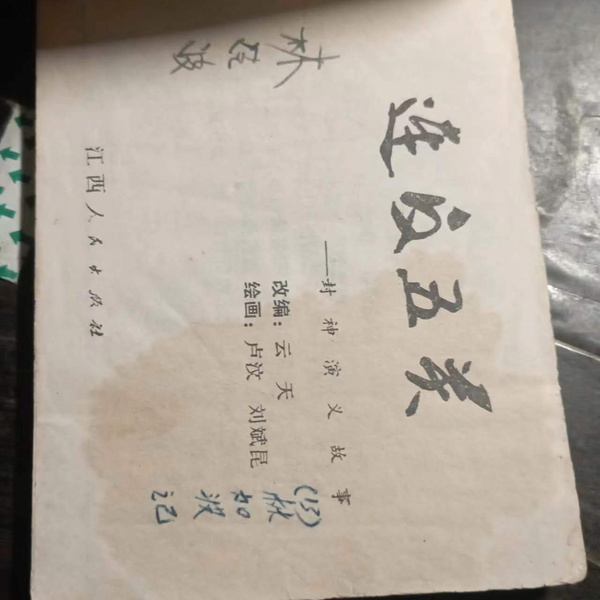 连反五关
——封神演义故事
改编：云天
绘画：卢汶 刘斌昆
江西人民出版社
林 波
(13)
林 如 波 记